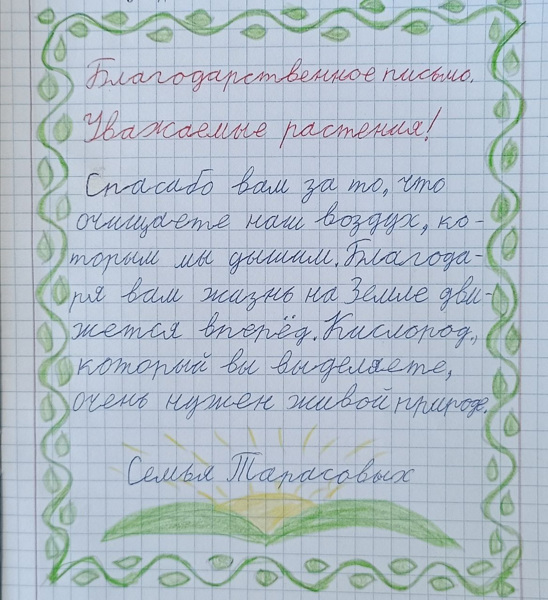 Благодарственное письмо.
Уважаемые растения!
Спасибо вам за то, что
очищаете наш воздух, ко-
торым мы дышим. Благода-
ря вам жизнь на Земле дви-
жется вперёд. Кислород,
который вы выделяете,
очень нужен живой природе.
Семья Тарасовых